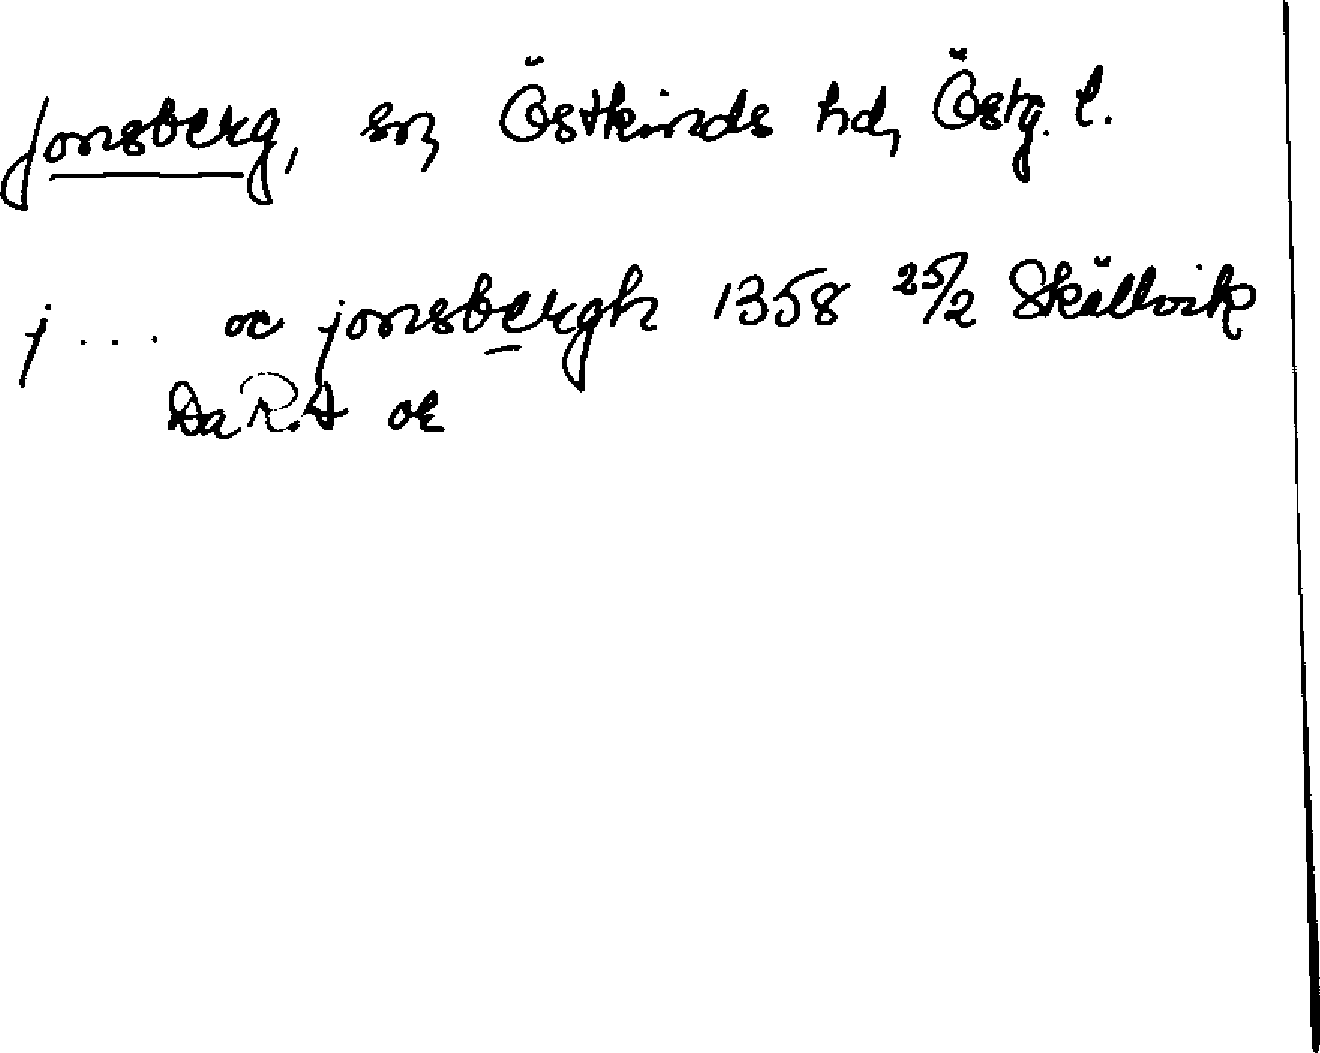 Jonsberg, sn, Östkinds hd, Östg. l.
j ... oc jonsbergh 1358 25/2 Skällvik
Da R.A or